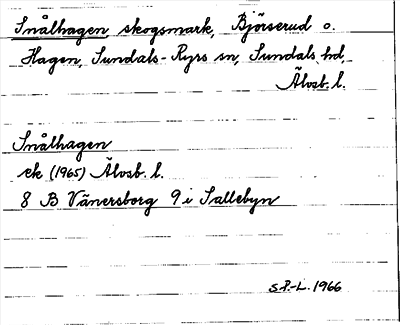 Snålhagen, skogsmark, Björserud o.
Hagen, Sundals-Ryrs sn, Sundals hd,
Älvsb. l.
Snålhagen
ek (1965) Älvsb. l.
8 B Vänersborg 9 i Sallebyn
S.P.-L. 1966